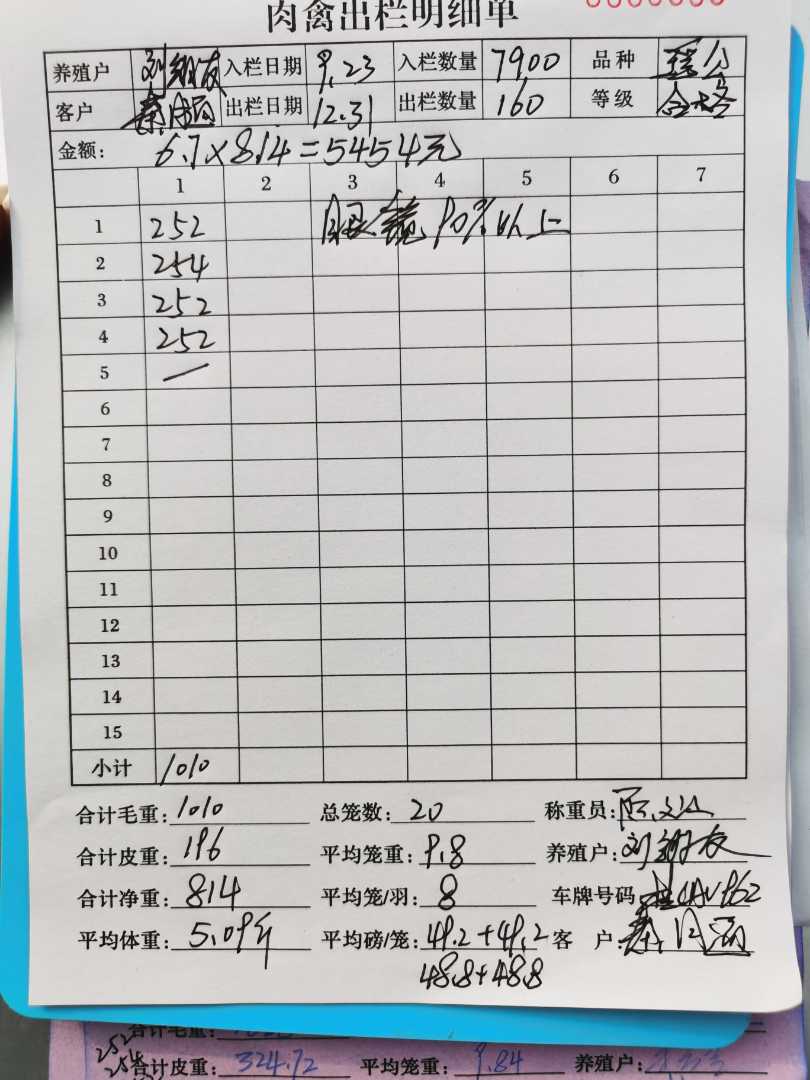 肉禽出栏明细单
养殖户 刘 友 入栏日期 9.23 入栏数量 7900 品种 瑶公
客户 秦 出栏日期 12.31 出栏数量 160 等级 合格
金额: 6.7×814=5454元
1 2 3 4 5 6 7
1 252 眼镜90%以上
2 254
3 252
4 252
5 —
6
7
8
9
10
11
12
13
14
15
小计 1010
合计毛重: 1010 总笼数: 20 称重员:
合计皮重: 196 平均笼重: 9.8 养殖户: 刘 友
合计净重: 814 平均笼/羽: 8 车牌号码
平均体重: 5.09斤 平均磅/笼: 49.2+49.2 客 户: 秦
48.8+48.8
合计毛重:
252
254 合计皮重: 324.72 平均笼重: 9.84 养殖户: